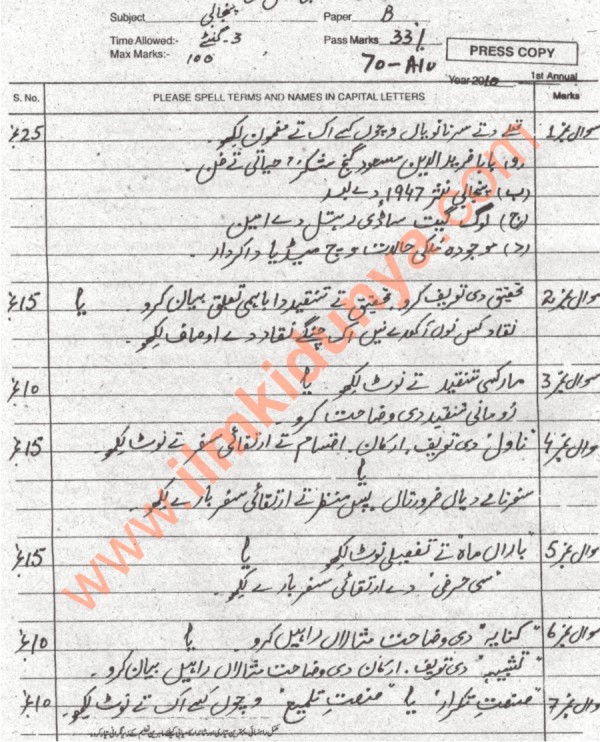 Subject پنجابی Paper B
Time Allowed:- 3 گھنٹے Pass Marks 33%
Max Marks:- 100 70-A10
PRESS COPY
Year 2010 1st Annual
S. No. PLEASE SPELL TERMS AND NAMES IN CAPITAL LETTERS Marks
سوال نمبر 1 تھلے دتے سرنانویاں وچوں کسے اک تے مضمون لکھو۔ 25
بابا فرید الدین مسعود گنج شکر: حیاتی تے فن۔
(ب) پنجابی نثر 1947 دے بعد
(ج) لوک گیت ساڈی رہتل دے امین
(د) موجودہ ملکی حالات وچ میڈیا دا کردار۔
سوال نمبر 2 تحقیق دی تعریف کرو۔ تحقیق تے تنقید دا باہمی تعلق بیان کرو۔ یا 15
نقاد کس نوں آکھدے نیں اک چنگے نقاد دے اوصاف لکھو۔
سوال نمبر 3 مارکسی تنقید تے نوٹ لکھو۔ یا 10
رومانی تنقید دی وضاحت کرو۔
سوال نمبر 4 "ناول" دی تعریف، ارکان، اقسام تے ارتقائی سفر تے نوٹ لکھو۔ 15
یا
سفرنامے دیاں ضرورتاں پس منظر تے ارتقائی سفر بارے لکھو۔
سوال نمبر 5 "باراں ماہ" تے تفصیلی نوٹ لکھو یا 15
"سی حرفی" دے ارتقائی سفر بارے لکھو۔
سوال نمبر 6 "کنایہ" دی وضاحت مثالاں راہیں کرو۔ یا 10
"تشبیہہ" دی تعریف، ارکان دی وضاحت مثالاں راہیں بیان کرو۔
سوال نمبر 7 "صنعتِ تکرار" یا "صنعتِ تلمیع" وچوں کسے اک تے نوٹ لکھو۔ 10
www.ilmkidunya.com